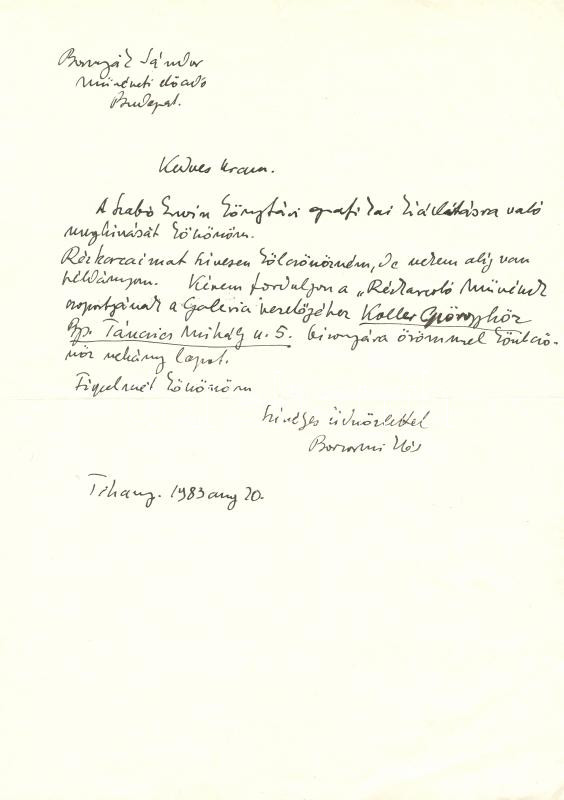 Sándor
Művészeti előadó
Budapest.
Kedves Uram.
A Szabó Ervin Könyvtári grafikai kiállításra való
meghívását köszönöm.
Rézkarcaimat szívesen kölcsönözném, de nekem alig van
példányom. Kérem forduljon a „Rézkarcoló Művészek
csoportjának a Galéria vezetőjéhez Koller Györgyhöz
Bp. Táncsics Mihály u. 5. bizonyára örömmel kölcsö-
nöz néhány lapot.
Figyelmét köszönöm
Szívélyes üdvözlettel
Borsos Miklós
Tihany. 1983 aug 20.